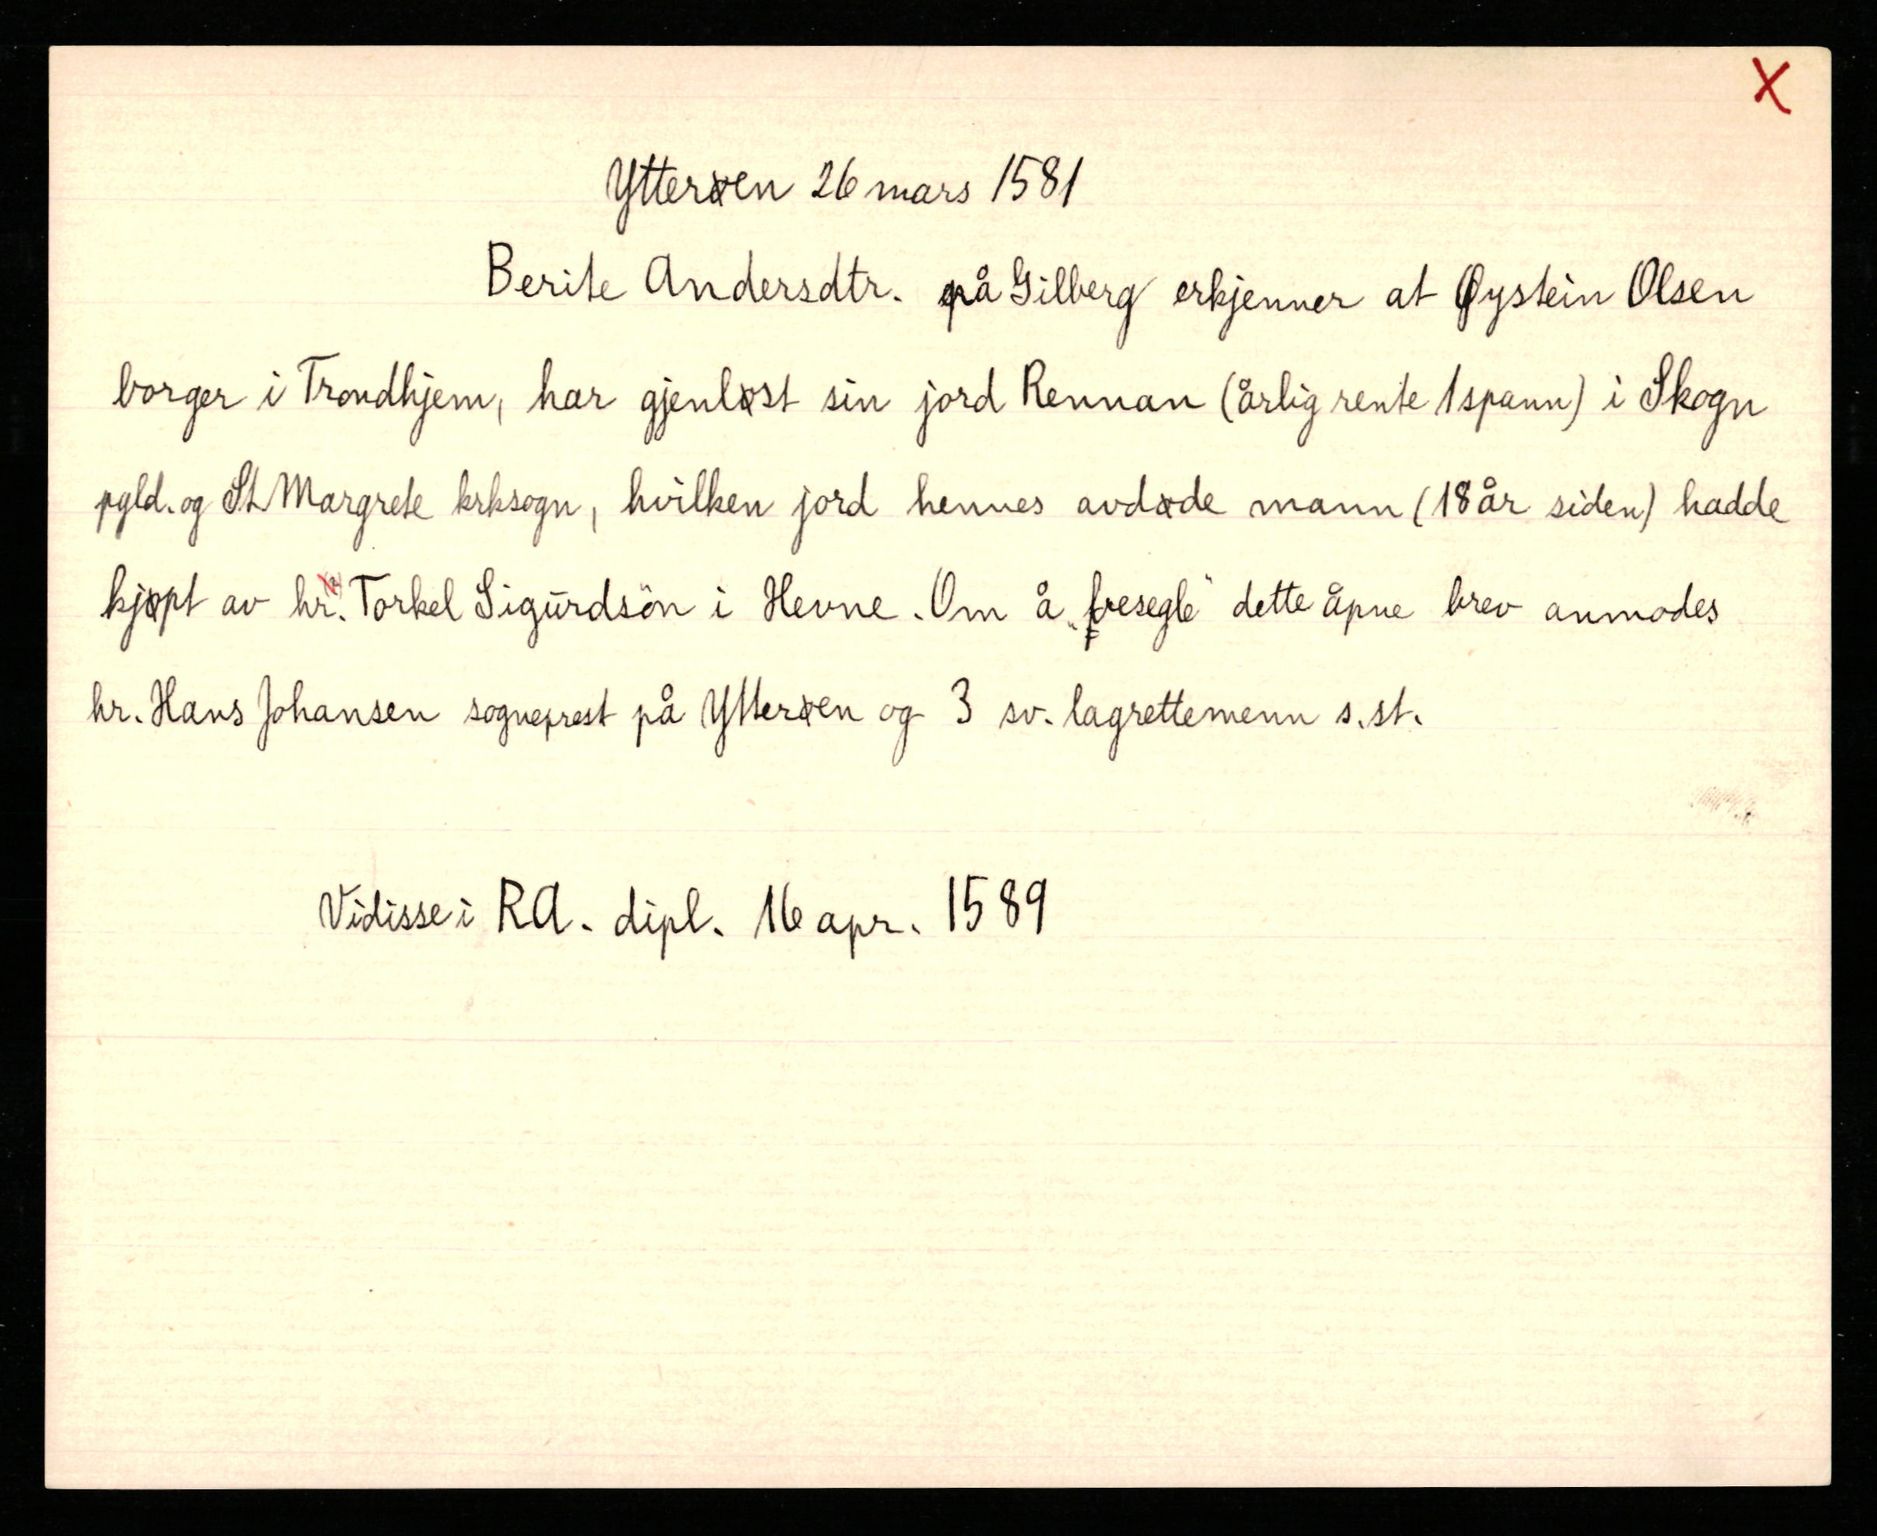 X
Ytterøen 26 mars 1581
Berite Andersdtr. på Gilberg erkjenner at Øystein Olsen
borger i Trondhjem, har gjenløst sin jord Rennan (årlig rente 1 spann) i Skogn
pgld. og St. Margrete krksogn, hvilken jord hennes avdøde mann (18 år siden) hadde
kjøpt av hr. Torkel Sigurdsön i Hevne. Om å „fresegle" dette åpne brev anmodes
hr. Hans Johansen sogneprest på Ytterøen og 3 sv. lagrettemenn s.st.
Vidisse i RA. dipl. 16 apr. 1589